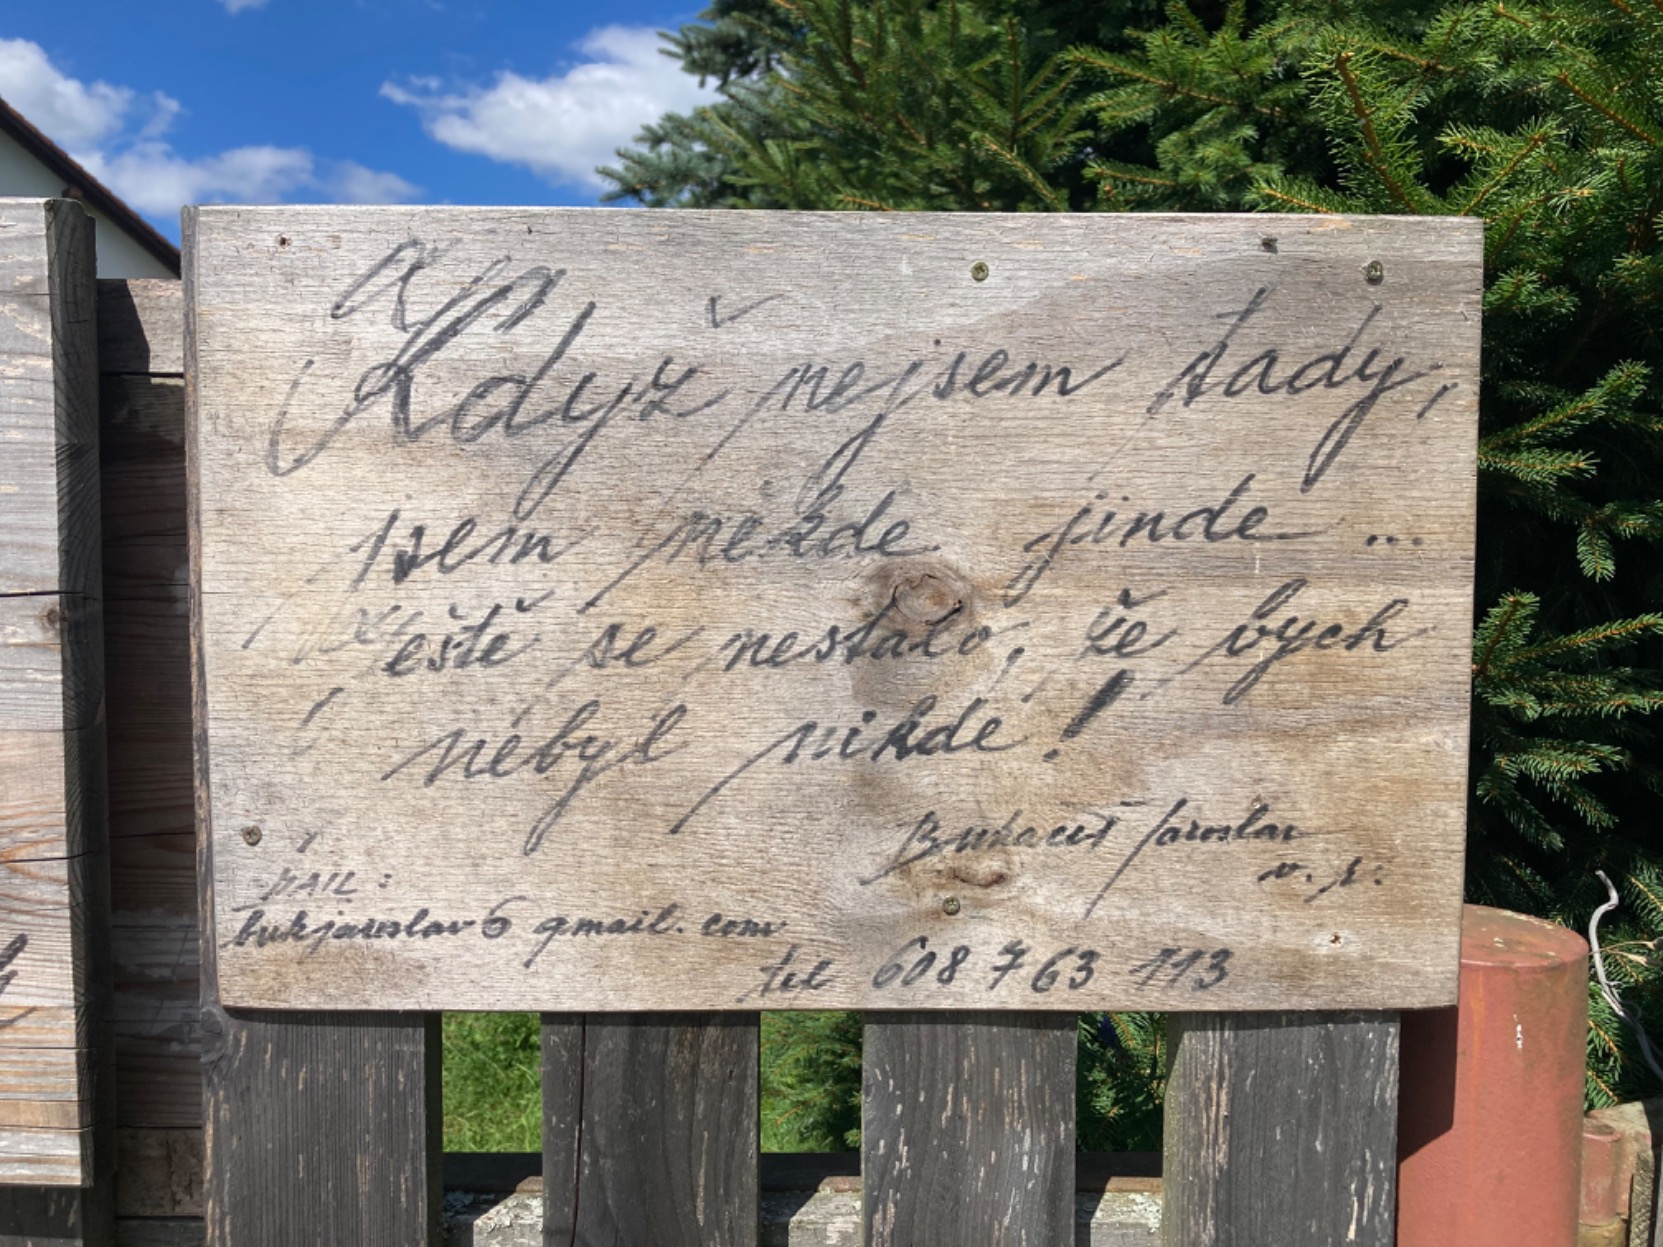 Když nejsem tady,
jsem někde jinde ...
Ještě se nestalo, že bych
nebyl nikde!
Jaroslav
v. r.
MAIL:
bukjaroslav@gmail.com
tel 608 763 113